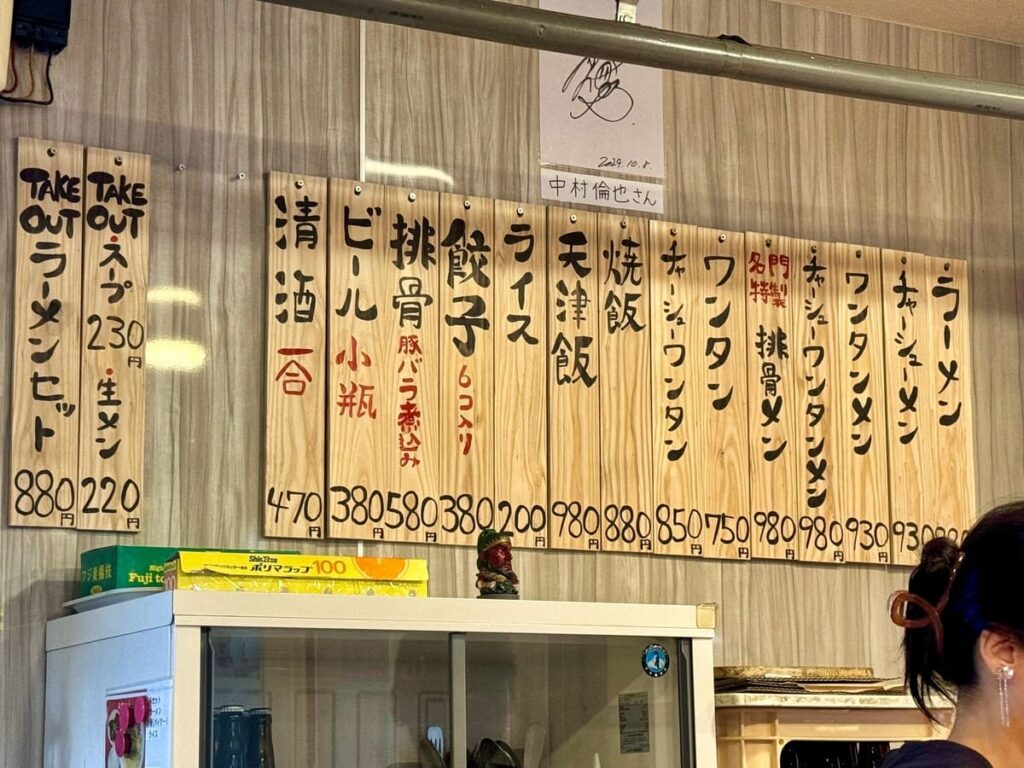 2024.10.8.
中村倫也さん
ラーメン
チャーシューメン 930
ワンタンメン 930円
チャーシューワンタンメン 980円
名門特製 排骨メン 980円
ワンタン 750円
チャーシューワンタン 850円
焼飯 880円
天津飯 980円
ライス 200円
餃子 6コ入り 380円
排骨 豚バラ煮込み 580円
ビール 小瓶 380円
清酒 一合 470円
TAKE OUT スープ 230円 生メン 220円
TAKE OUT ラーメンセット 880円
フジ楊枝
Fuji to
ShinEtsu
ポリマラップ 100